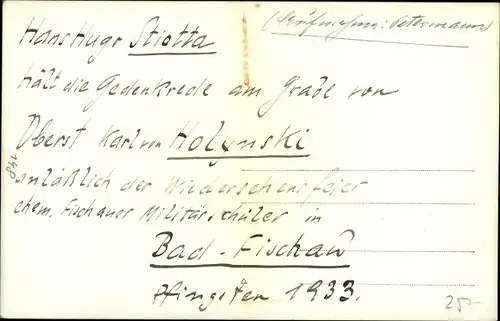 (Aufnahme: Petermann)
Hans Hugo Stiotta
hält die Gedenkrede am Grabe von
Oberst Karl von Holynski
anläßlich der Wiedersehensfeier
ehem. Fischauer Militärschüler in
Bad-Fischau
Pfingsten 1933.
148
25-